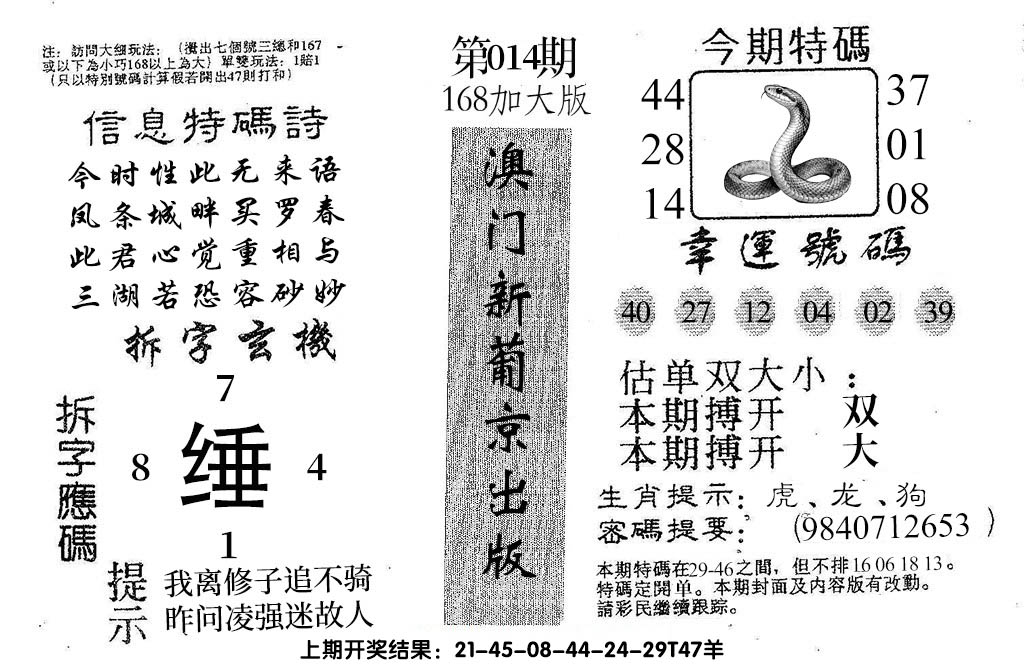 注：訪問大细玩法：（攪出七個號三總和167
或以下為小巧168以上為大）單雙玩法：1賠1
（只以特別號碼計算假若開出47則打和）
信息特碼詩
今时性此无来语
凤条城畔买罗春
此君心觉重相与
三湖若恐容砂妙
拆字玄機
拆字應碼
7
8 缍 4
1
提示
我离修子追不骑
昨问凌强迷故人
第014期
168加大版
澳门新葡京出版
今期特碼
44 37
28 01
14 08
幸運號碼
40 27 12 04 02 39
估单双大小：
本期搏开 双
本期搏开 大
生肖提示：虎、龙、狗
密碼提要：（9840712653）
本期特碼在29-46之間，但不排16 06 18 13。
特碼定開单。本期封面及内容版有改動。
請彩民繼續跟踪。
上期开奖结果：21-45-08-44-24-29T47羊